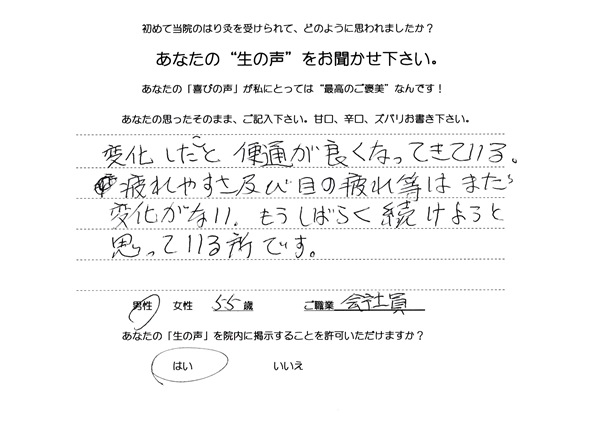 初めて当院のはり灸を受けられて、どのように思われましたか？
あなたの“生の声”をお聞かせ下さい。
あなたの「喜びの声」が私にとっては“最高のご褒美”なんです！
あなたの思ったそのまま、ご記入下さい。甘口、辛口、ズバリお書き下さい。
変化したこと 便通が良くなってきている。
疲れやすさ及び目の疲れ等はまだ
変化がない。もうしばらく続けようと
思っている所です。
男性 女性 55歳 ご職業 会社員
あなたの「生の声」を院内に掲示することを許可いただけますか？
はい いいえ